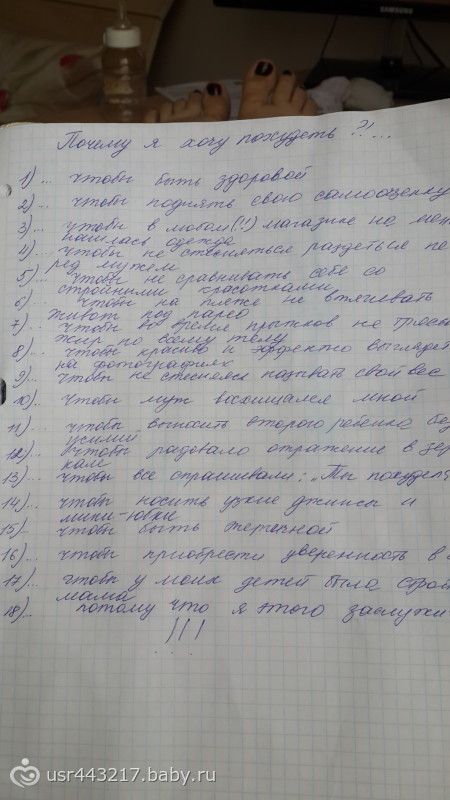 SAMSUNG
Почему я хочу похудеть ?!...
1)... чтобы быть здоровой
2)... чтобы поднять свою самооценку
3)... чтобы в любом(!!) магазине на мен
нашлась одежда
4)... чтобы не стесняться раздеться пе
ред мужем
5)... чтобы не сравнивать себя со
стройными красотками
6)... чтобы на пляже не втягивать
живот под парео
7)... чтобы во время прыжков не тряслс
жир по всему телу
8)... чтобы красиво и эффектно выглядет
на фотографиях
9)... чтобы не стеснялся называть свой вес
10)... чтобы муж восхищался мной
11)... чтобы выносить второго ребенка без
усилий
12)... чтобы радовало отражение в зер
кале
13)... чтобы все спрашивали: „Ты похудела
14)... чтобы носить узкие джинсы и
мини-юбки
15)... чтобы быть
16)... чтобы приобрести уверенность в с
17)... чтобы у моих детей была строй
мама
18)... потому что я этого заслужи
!!!
usr443217.baby.ru